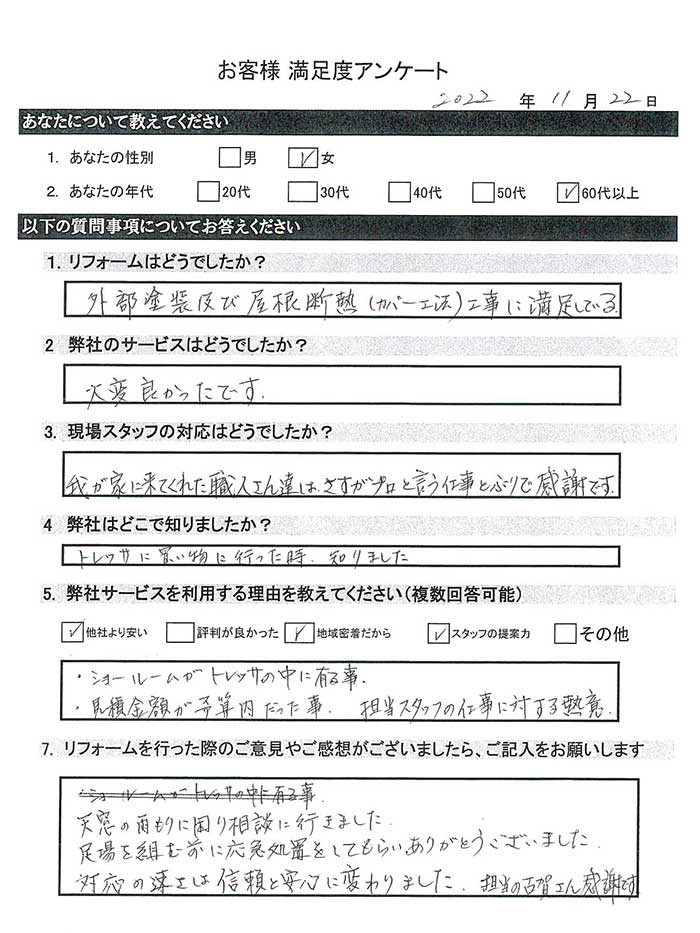 お客様 満足度アンケート
2022 年 11 月 22 日
あなたについて教えてください
1. あなたの性別 □男 ☑女
2. あなたの年代 □20代 □30代 □40代 □50代 ☑60代以上
以下の質問事項についてお答えください
1. リフォームはどうでしたか？
外部塗装及び屋根断熱(カバー工法)工事に満足している
2 弊社のサービスはどうでしたか？
大変良かったです.
3. 現場スタッフの対応はどうでしたか？
我が家に来てくれた職人さん達は、さすがプロと言う仕事とぶりで感謝です.
4 弊社はどこで知りましたか？
トレッサに買い物に行った時、知りました
5. 弊社サービスを利用する理由を教えてください(複数回答可能)
☑他社より安い □評判が良かった ☑地域密着だから ☑スタッフの提案力 □その他
・ショールームがトレッサの中に有る事.
・見積金額が予算内だった事. 担当スタッフの仕事に対する熱意.
7. リフォームを行った際のご意見やご感想がございましたら、ご記入をお願いします
・ショールームがトレッサの中に有る事.
天窓の雨もりに困り相談に行きました.
足場を組む前に応急処置をしてもらいありがとうございました.
対応の速さは信頼と安心に変わりました. 担当の古賀さん感謝です